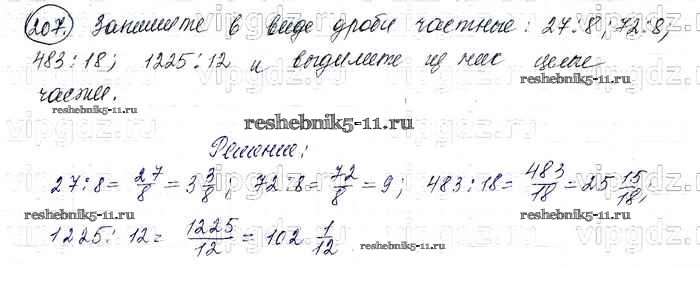 207. Запишите в виде дроби частные: 27:8; 72:8;
483:18; 1225:12 и выделите из них целые
части.
reshebnik5-11.ru
Решение:
27:8= 27/8 = 3 3/8; 72:8= 72/8 = 9; 483:18= 483/18 = 25 15/18;
reshebnik5-11.ru
reshebnik5-11.ru
1225:12= 1225/12 = 102 1/12
reshebnik5-11.ru